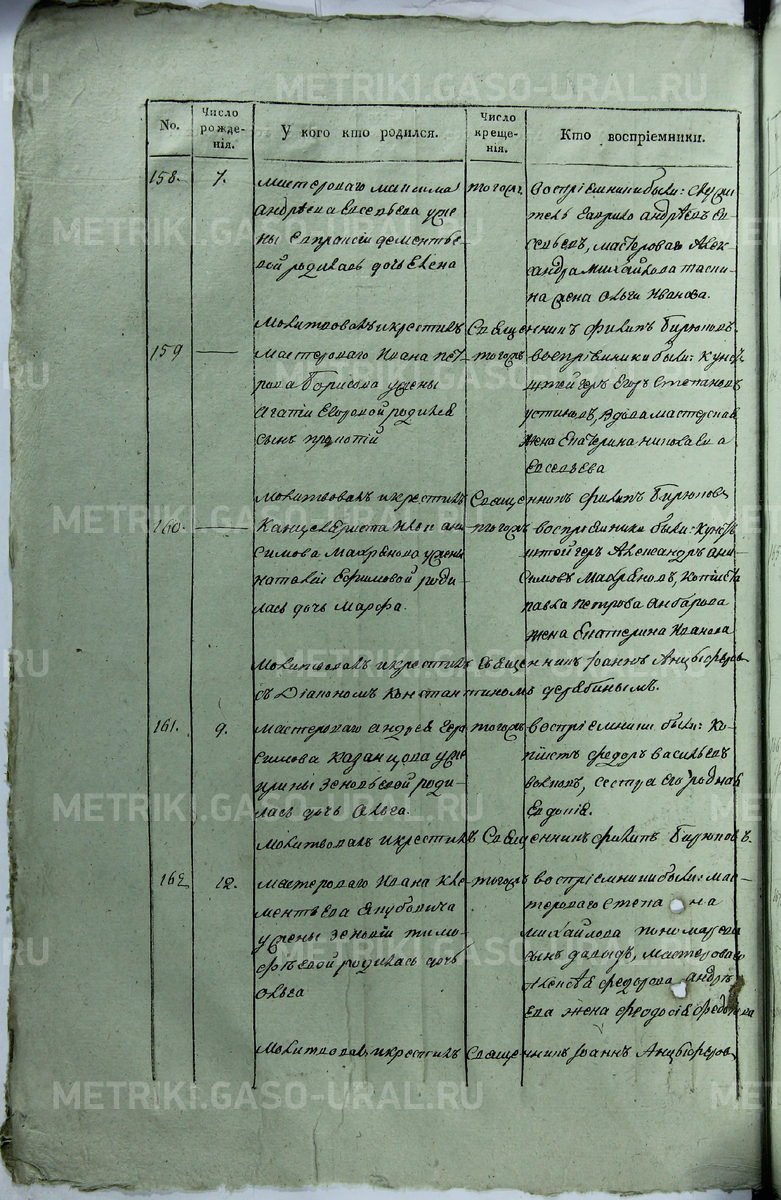 No.
Число рожденія.
У кого кто родился.
Число крещенія.
Кто воспріемники.
158.
7.
мастероваго максима
андрѣева евсевьева у же
ны
дементье
вой родилась дочь елена
тогожъ
воспріемники были: служи
тель гаврило андрѣевъ ев
севьевъ, мастероваго алек
сандра михайлова
на жена ольга иванова.
молитвовалъ и крестилъ Священникъ филипъ бирюковъ.
159
мастероваго ивана пет
рова борисова у жены
агапіи егоровой родился
сынъ
тогожъ
воспріемники были:
егоръ степановъ
устиновъ, вдова мастерская
жена екатерина николаева
евсевьева
молитвовалъ и крестилъ Священникъ филипъ бирюковъ
160.
канцеляриста
симова у жены
наталіи ефимовой роди
лась дочь марфа.
тогожъ
воспріемники были:
александръ ани
симовъ копіиста
павла петрова
жена екатерина иванова
молитвовалъ и крестилъ Священникъ іоаннъ
съ діакономъ константиномъ
161.
9.
мастероваго андрея гера
симова казанцова у же
ны ирины зеновьевой роди
лась дочь ольга.
тогожъ
воспріемники были: ко
піистъ федоръ васильевъ
волковъ, сестра его родная
евдокія.
молитвовалъ и крестилъ Священникъ филипъ бирюковъ.
162
12.
мастероваго ивана кле
ментьева якубовича
у жены зеновіи тимо
фѣевой родилась дочь
ольга
тогожъ
воспріемники были: мас
тероваго степана
михайлова пономарева
сынъ давыдъ, мастероваго
алексѣя федорова андрѣ
ева жена феодосія федотова
молитвовалъ и крестилъ Священникъ іоаннъ
METRIKI.GASO-URAL.RU